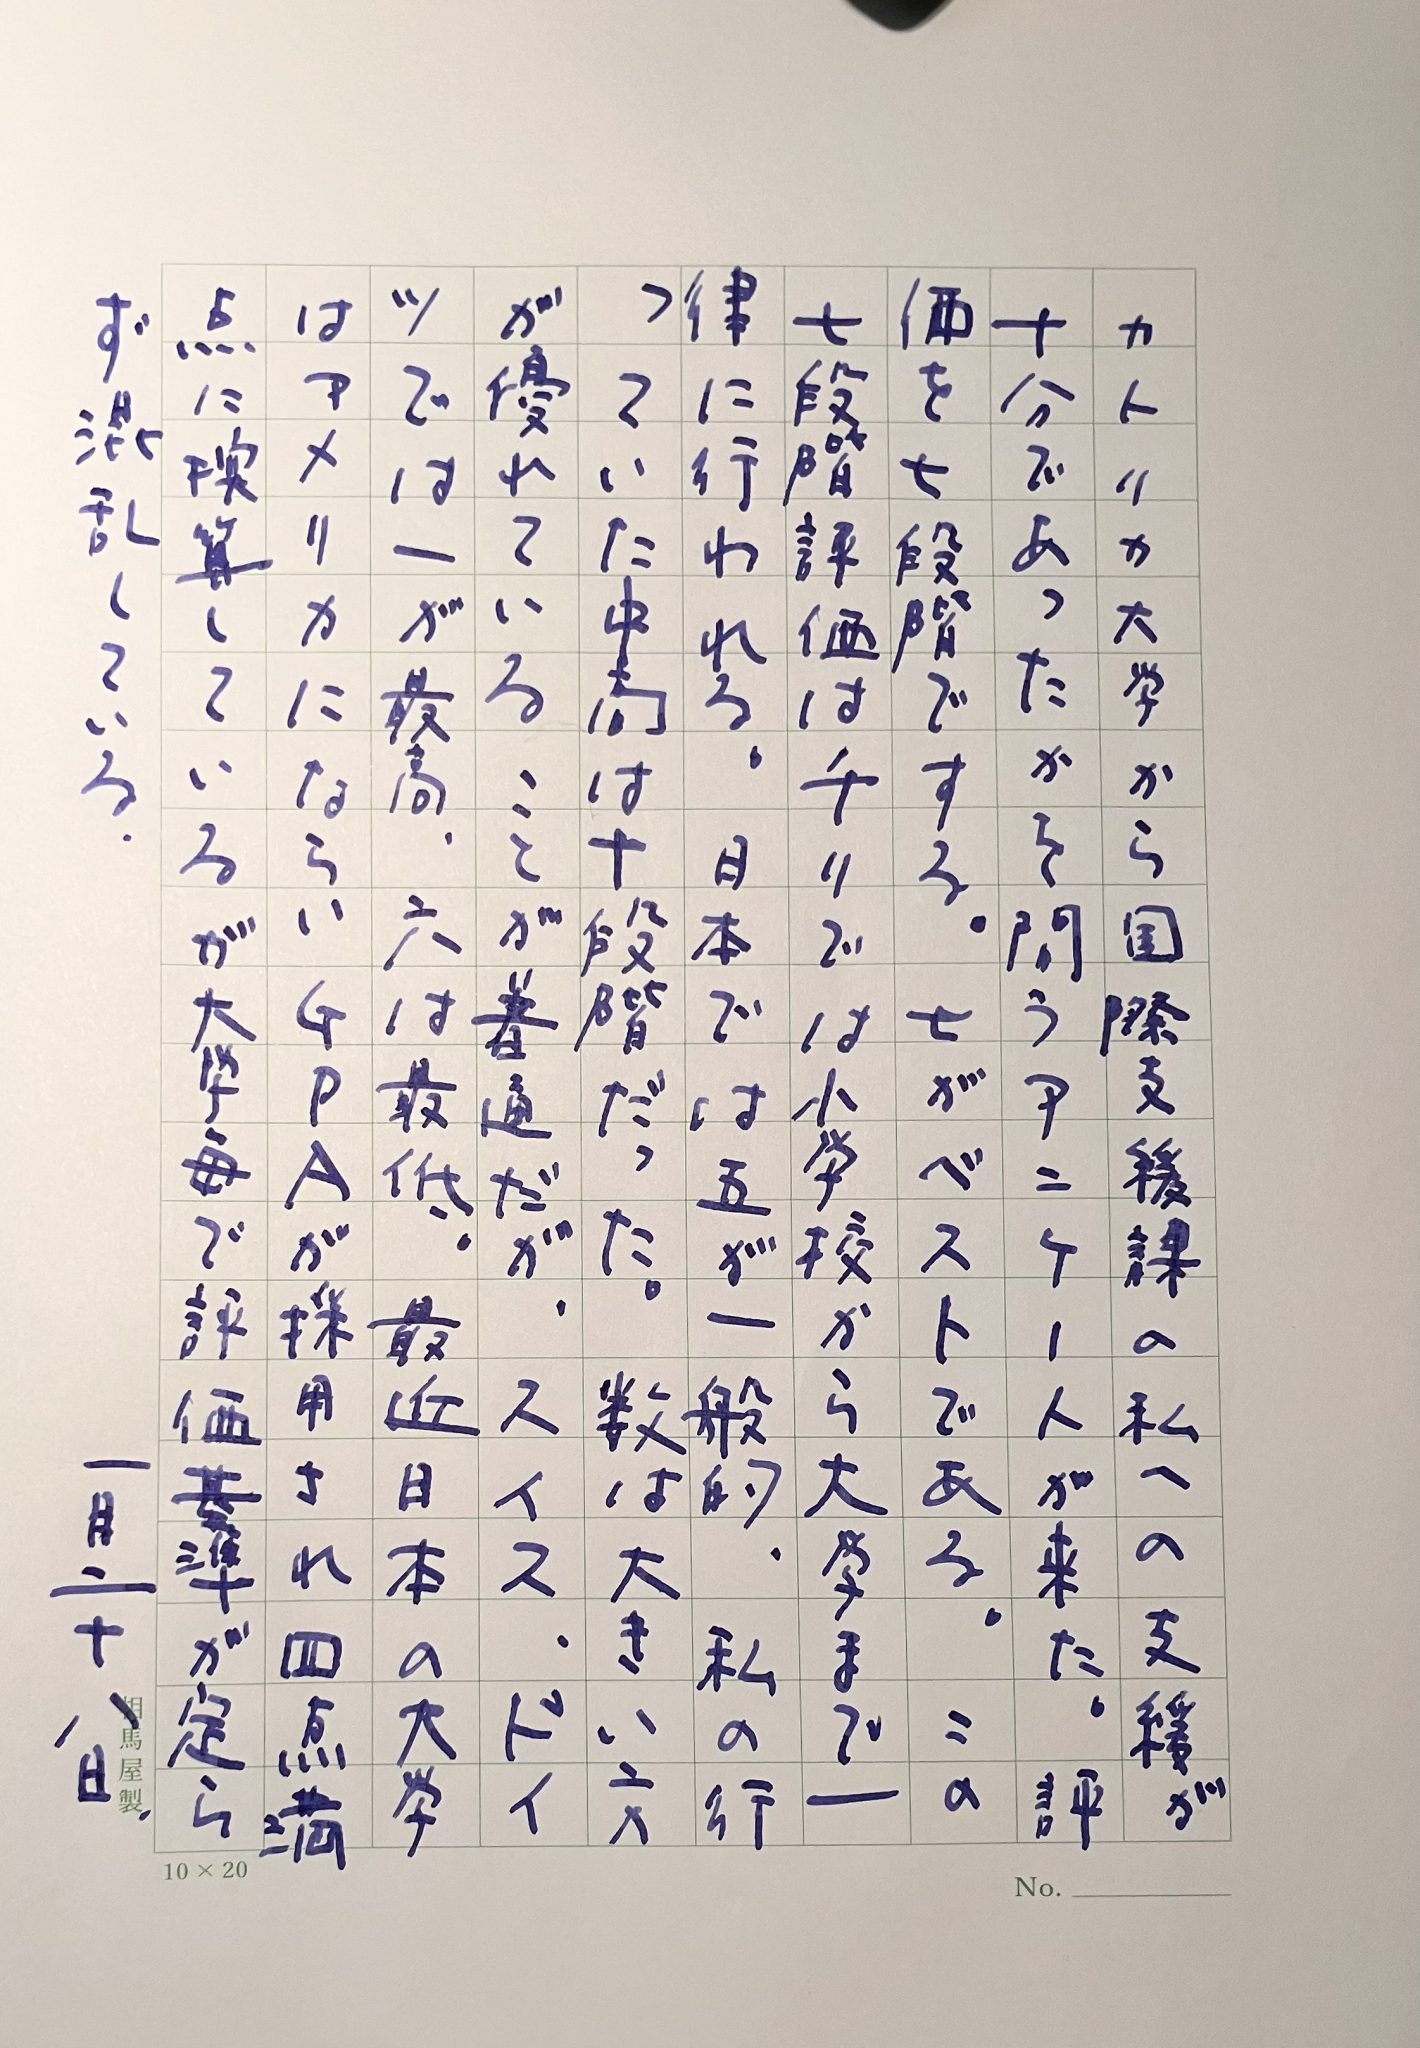 カトリカ大学から国際支援課の私への支援が
十分であったかを問うアンケートが来た。評
価を七段階でする。七がベストである。この
七段階評価はチリでは小学校から大学まで一
律に行われる。日本では五が一般的、私の行
っていた中高は十段階だった。数は大きい方
が優れていることが普通だが、スイス、ドイ
ツでは一が最高、六は最低。最近日本の大学
はアメリカにならいGPAが採用され四点満
点に換算しているが大学毎で評価基準が定ら
ず混乱している。
一月二十八日、
相馬屋製
10×20
No.